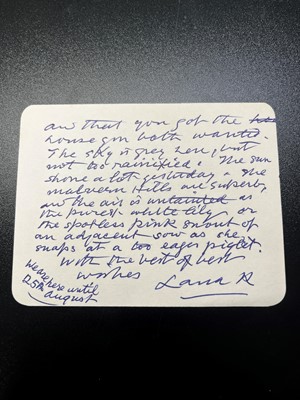 and that you got the
house you both wanted.
The sky is grey here, but
not too rainified. The sun
shone a lot yesterday & the
malvern Hills are superb,
and the air is untainted as
the purest white lily, or
the spotless pink snout of
an adjacent sow as she
snaps at a too eager piglet.
With the best of best
wishes
Lana
We are here until
25th
August